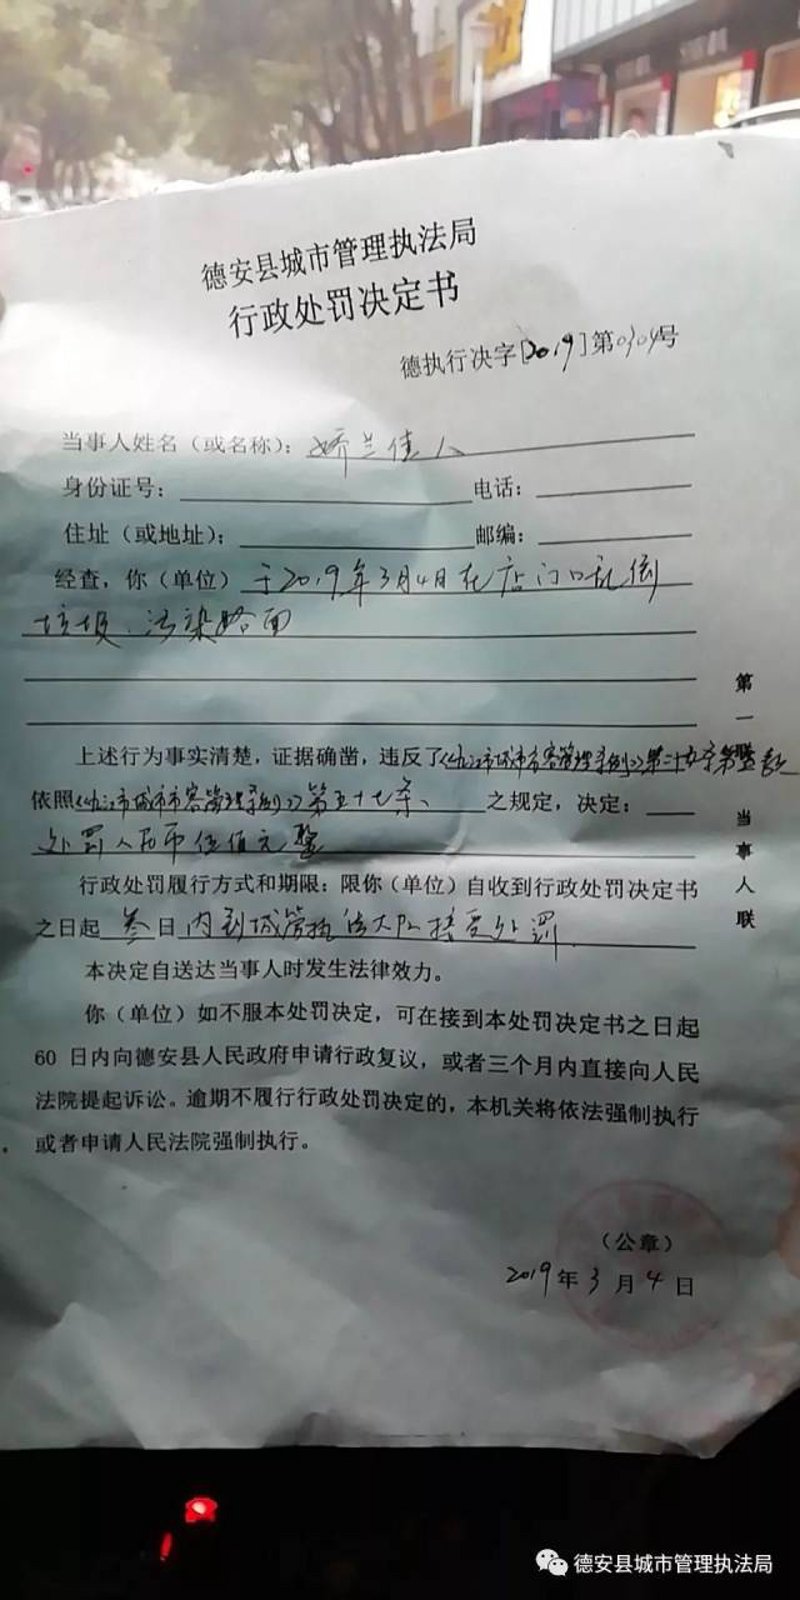 德安县城市管理执法局
行政处罚决定书
德执行决字[2019]第0304号
当事人姓名（或名称）：娇兰佳人
身份证号： 电话：
住址（或地址）： 邮编：
经查，你（单位）于2019年3月4日在店门口乱倒
垃圾、污染路面
上述行为事实清楚，证据确凿，违反了《九江市城市市容管理条例》第三十五条第
依照《九江市城市市容管理条例》第五十七条、之规定，决定：
处罚人民币伍佰元整
行政处罚履行方式和期限：限你（单位）自收到行政处罚决定书
之日起叁日内到城管执法大队接受处罚.
本决定自送达当事人时发生法律效力。
你（单位）如不服本处罚决定，可在接到本处罚决定书之日起
60 日内向德安县人民政府申请行政复议，或者三个月内直接向人民
法院提起诉讼。逾期不履行行政处罚决定的，本机关将依法强制执行
或者申请人民法院强制执行。
（公章）
2019年3月4日
第一联
当事人联
德安县城市管理执法局